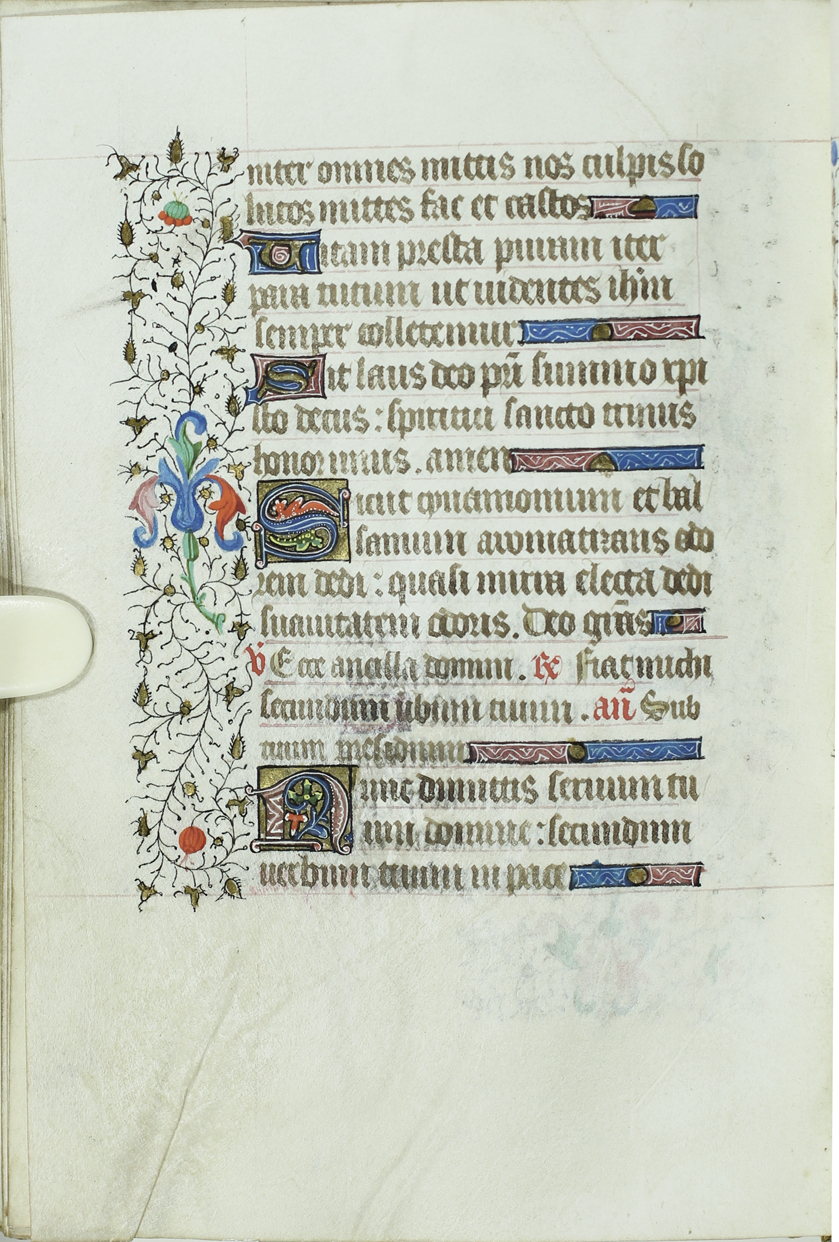 niter omnes mittis nos culpis so
lutos mittes fac et castos
Uitam presta puram iter
para tutum ut uidentes ihm
semper colletemur
Sit laus deo prī summo xpi
sto decus : spiritui sancto trinus
honor unus . amen
Sicut cynamomum et bal
samum aromatizans odo
rem dedi : quasi mirra electa dedi
suauitatem odoris . Deo grās
V Ecce ancilla domini . R Fiat michi
secundum ūbum tuum . añ Sub
tuum presidium
Nunc dimittis seruum tu
um domine : secundum
uerbum tuum in pace